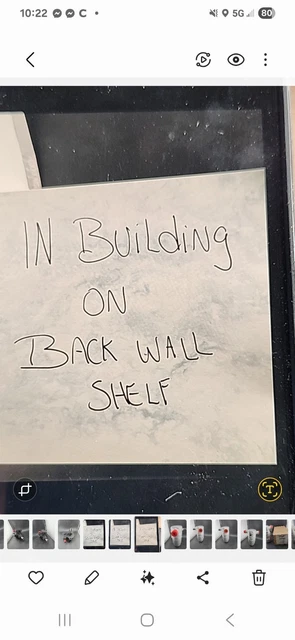 10:22 C • 5G 80
IN Building
ON
BACK WALL
SHELF
T